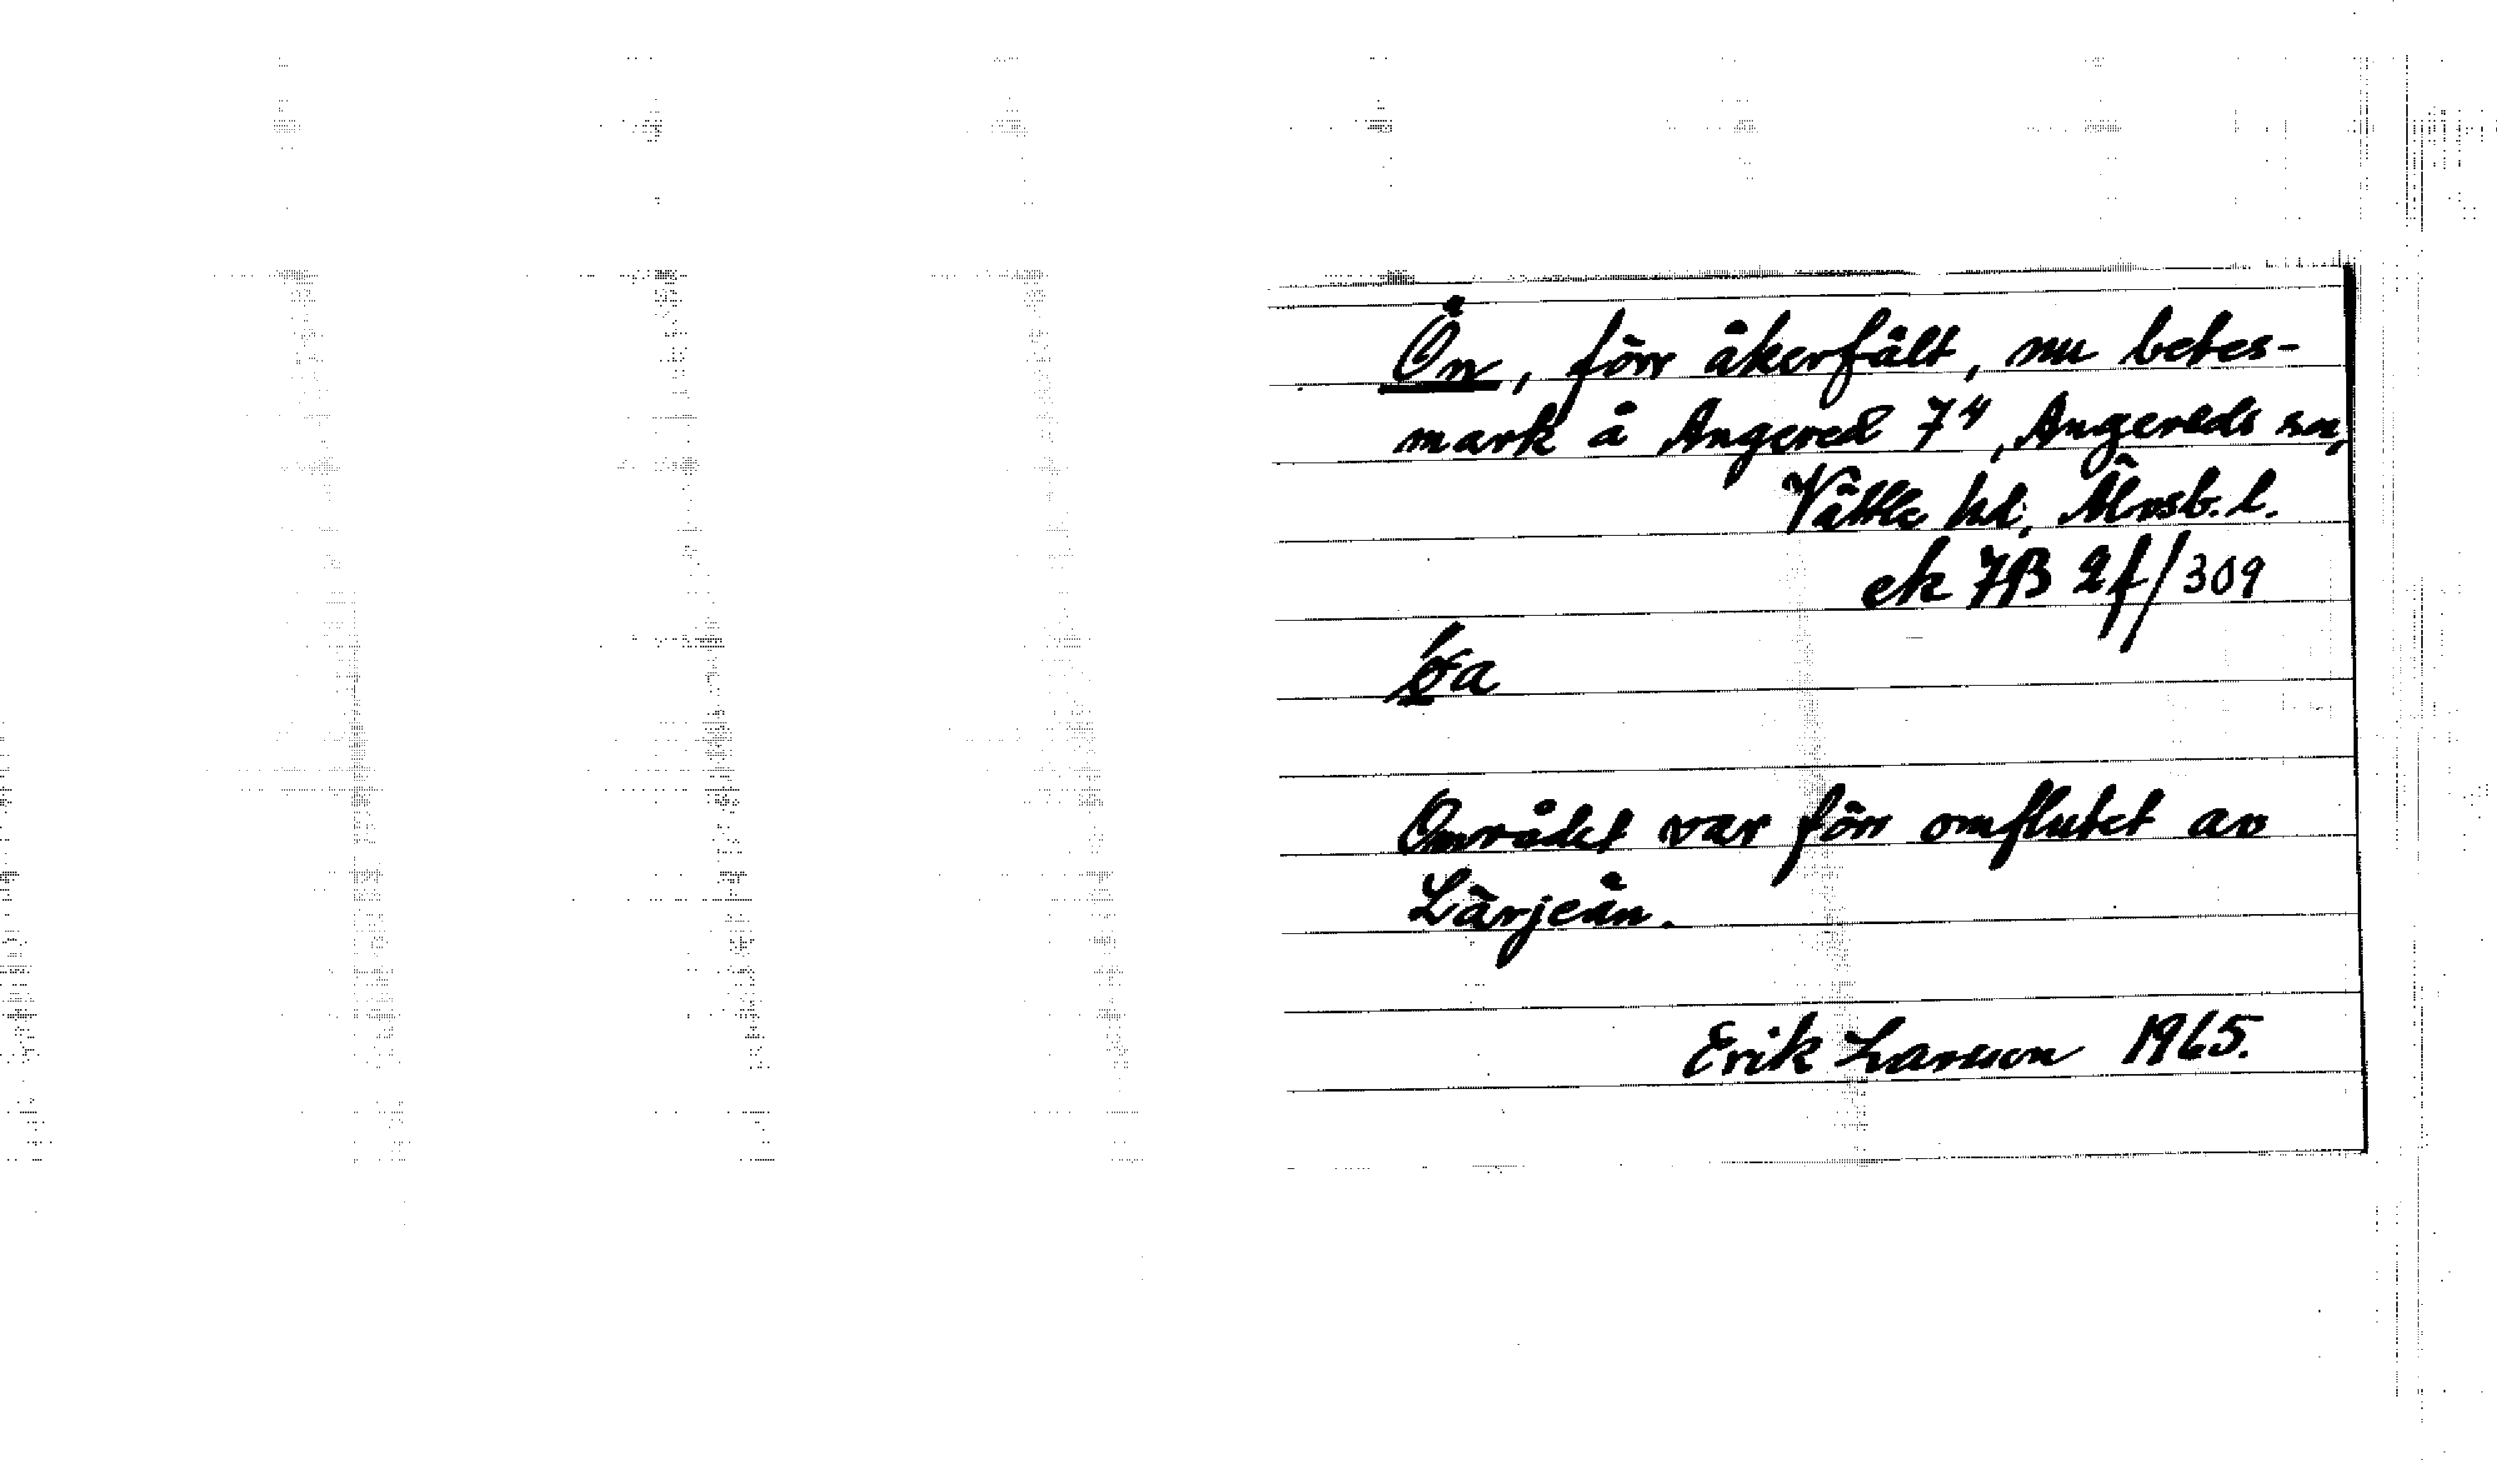 Ön, förr åkerfält, nu betes-
mark å Angered 7⁴, Angereds sn,
Vättle hd, Älvsb. l.
ek 7B 2f/309
Området var förr omflutet av
Lärjeån.
Erik Larsson 1965.